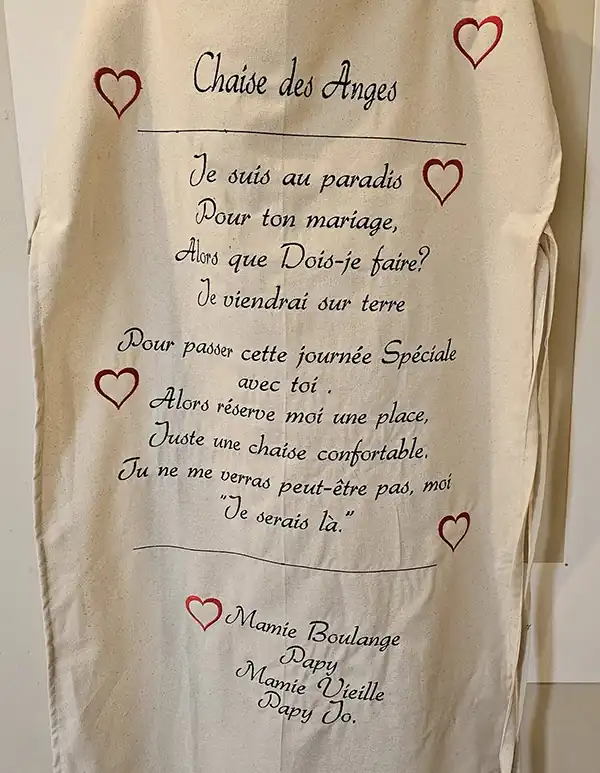 Chaise des Anges
Je suis au paradis
Pour ton mariage,
Alors que Dois-je faire?
Je viendrai sur terre
Pour passer cette journée Spéciale
avec toi .
Alors réserve moi une place,
Juste une chaise confortable.
Tu ne me verras peut-être pas, moi
"Je serais là."
Mamie Boulange
Papy
Mamie Vieille
Papy Jo.